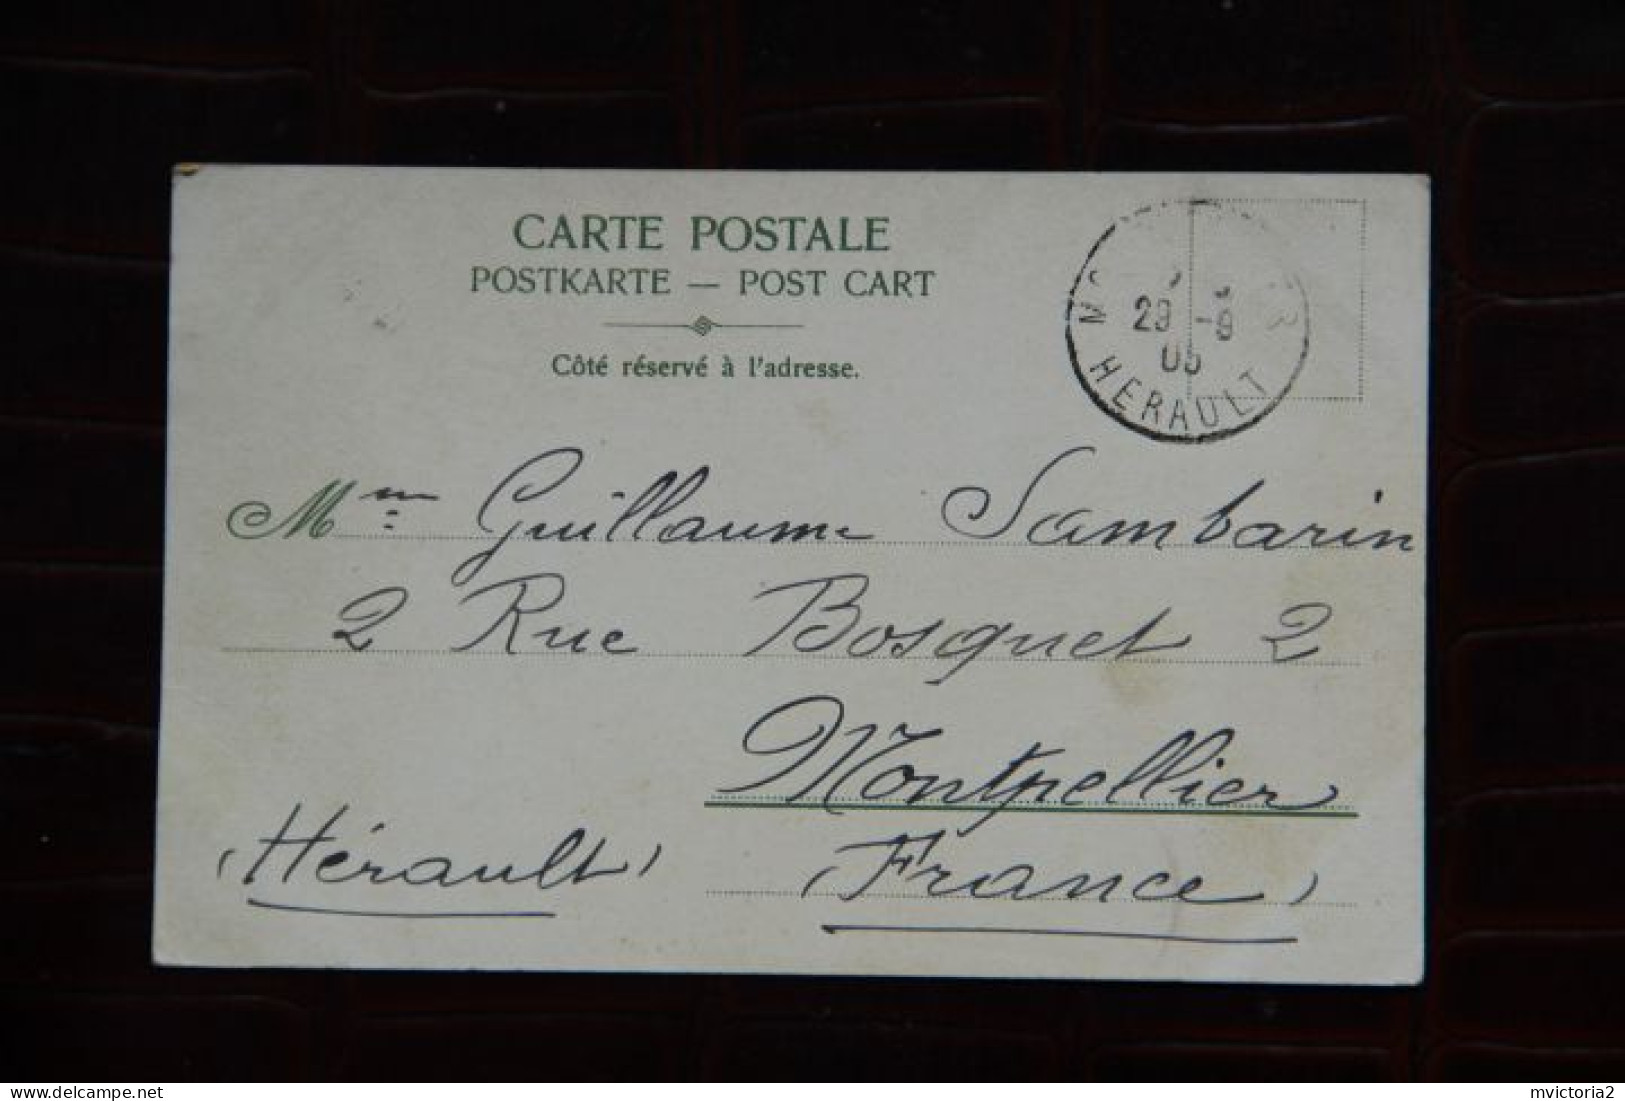 CARTE POSTALE
POSTKARTE — POST CART
Côté réservé à l'adresse.
29 -9
05
HERAULT
Mme Guillaume Sambarin
2 Rue Bosquet 2
Montpellier
(Hérault) (France)
mvictoria2